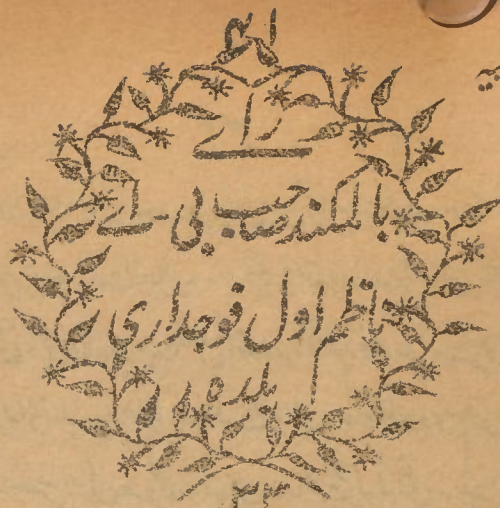 رائے
بالمکند صاحب بی-اے
ناظم اول فوجداری
بلدہ